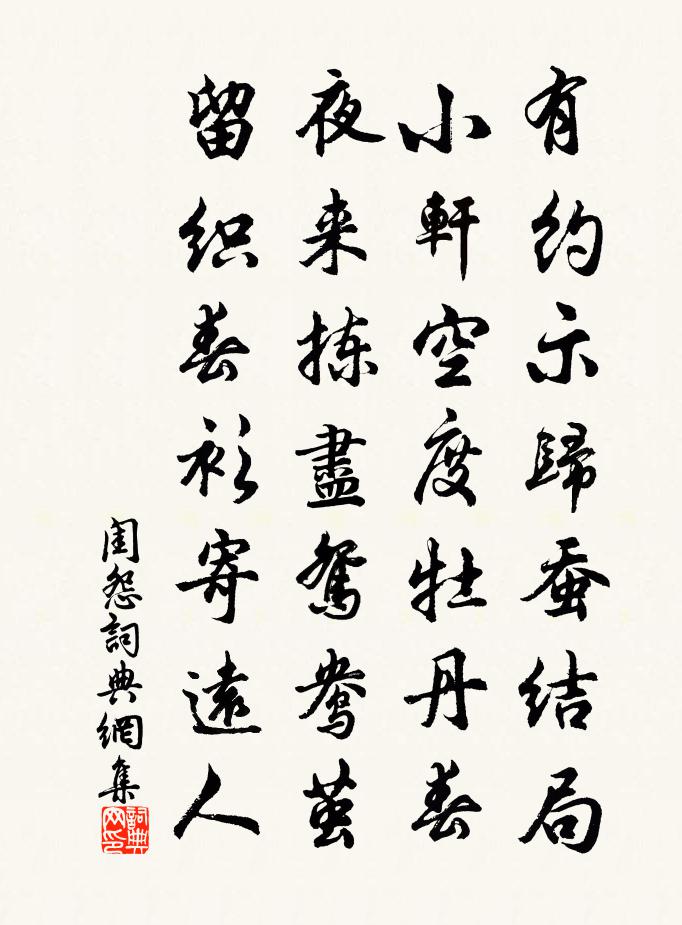 有約示歸蚕結局
小軒空度牡丹春
夜来拣盡鴛鴦茧
留织春衫寄遠人
閨怨詞典網集
詞典网印